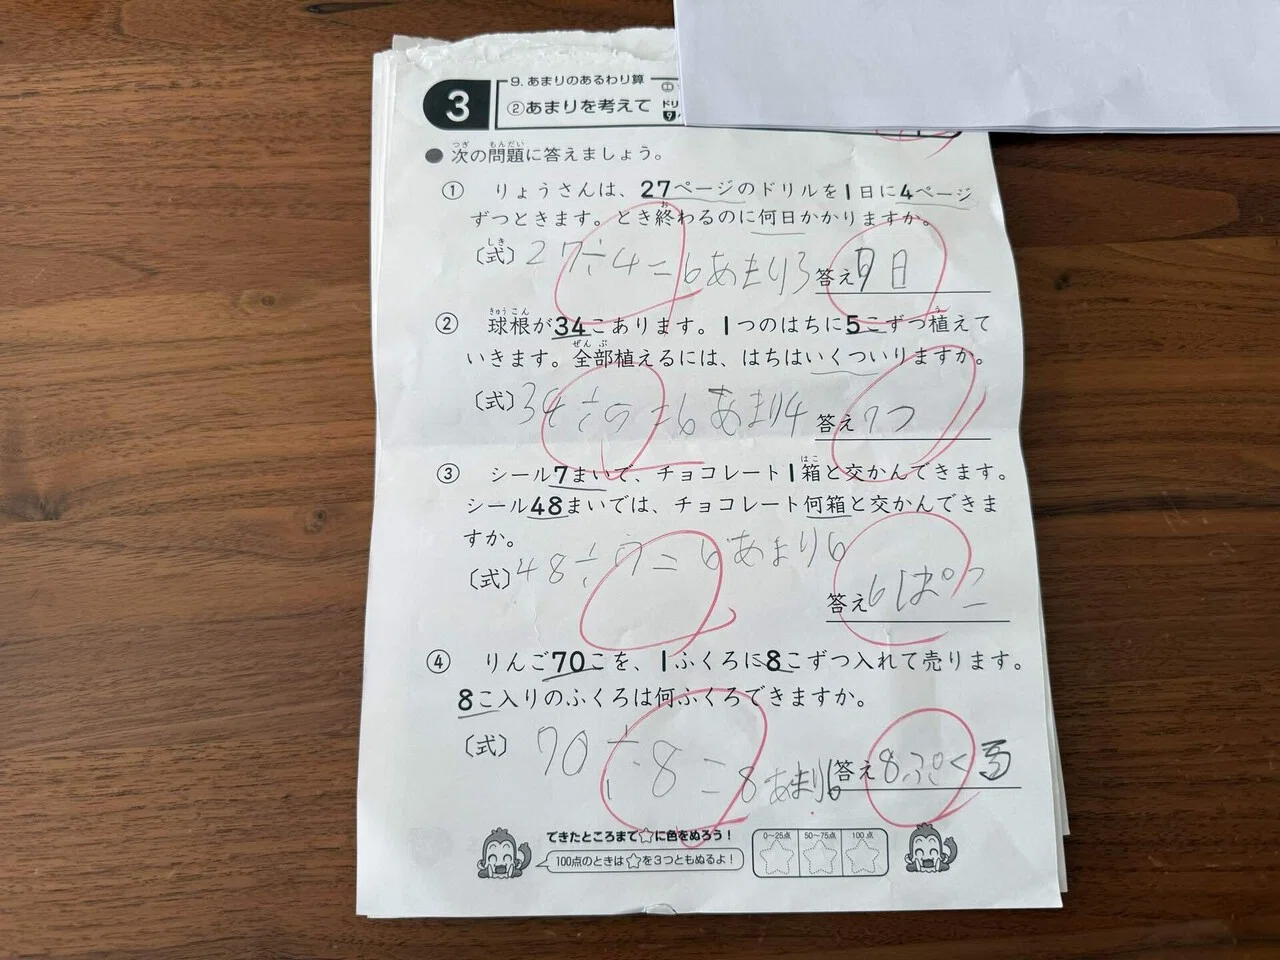 3
9. あまりのあるわり算
②あまりを考えて
ドリ
9
● 次の問題に答えましょう。
① りょうさんは、27ページのドリルを1日に4ページ
ずつときます。とき終わるのに何日かかりますか。
〔式〕27÷4=6あまり3 答え 7日
② 球根が34こあります。1つのはちに5こずつ植えて
いきます。全部植えるには、はちはいくついりますか。
〔式〕34÷5=6あまり4 答え 7つ
③ シール7まいで、チョコレート1箱と交かんできます。
シール48まいでは、チョコレート何箱と交かんできま
すか。
〔式〕48÷7=6あまり6
答え 6ぱこ
④ りんご70こを、1ふくろに8こずつ入れて売ります。
8こ入りのふくろは何ふくろできますか。
〔式〕70÷8=8あまり6 答え 8ぷくろ
できたところまで☆に色をぬろう!
100点のときは☆を3つともぬるよ!
0~25点 50~75点 100点